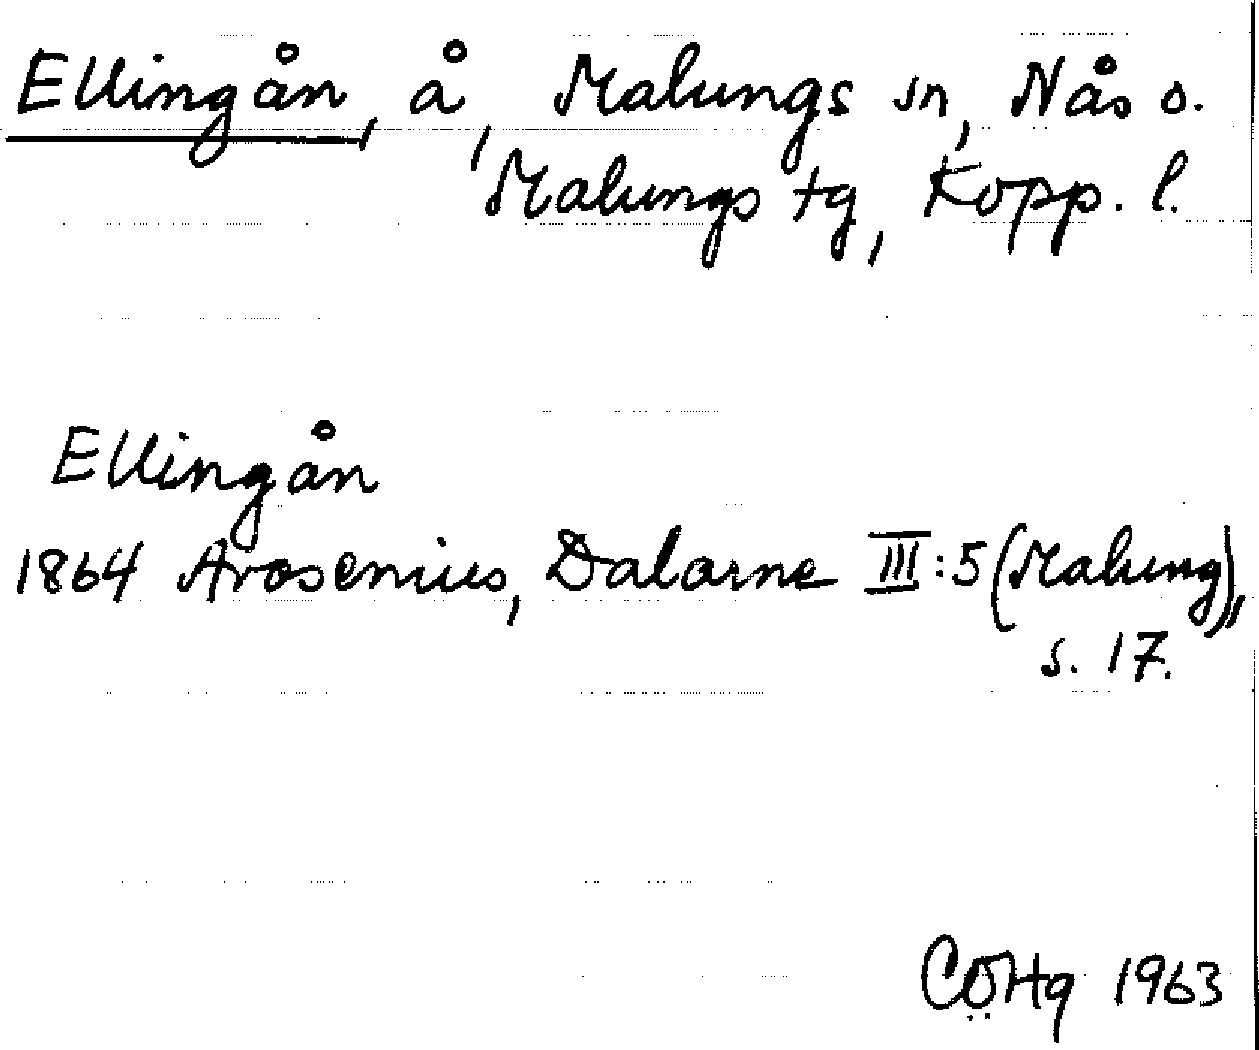 Ellingån, å, Malungs sn, Nås o.
Malungs tg, Kopp. l.
Ellingån
1864 Arosenius, Dalarne III:5 (Malung),
s. 17.
1963